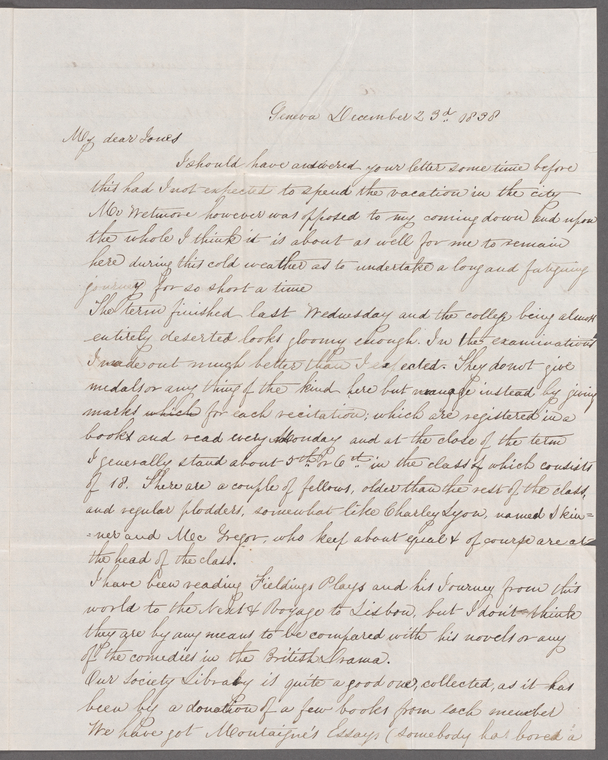 Geneva December 23d. 1838
My dear Jones
I should have answered your letter some time before
this had I not expected to spend the vacation in the city
Mr Wetmore however was opposed to my coming down and upon
the whole I think it is about as well for me to remain
here during this cold weather as to undertake a long and fatiguing
journey for so short a time
The term finished last Wednesday and the college being almost
entirely deserted looks gloomy enough. In the examinations
I made out much better than I expected. They do not give
medals or any thing of the kind here but manage instead by giving
marks which for each recitation; which are registered in a
book and read every Monday and at the close of the term
I generally stand about 5th or 6th in the class of which consists
of 18. There are a couple of fellows, older than the rest of the class,
and regular plodders, somewhat like Charley Lyon, named Skin=
=ner and Mc Gregor, who keep about equal & of course are at
the head of the class.
I have been reading Fieldings Plays and his Journey from this
world to the Next & Voyage to Lisbon, but I don't think
they are by any means to be compared with his novels or any
of the comedies in the British Drama.
Our Society Library is quite a good one, collected, as it has
been by a donation of a few books from each member
We have got Montaigne's Essays (somebody has bored a